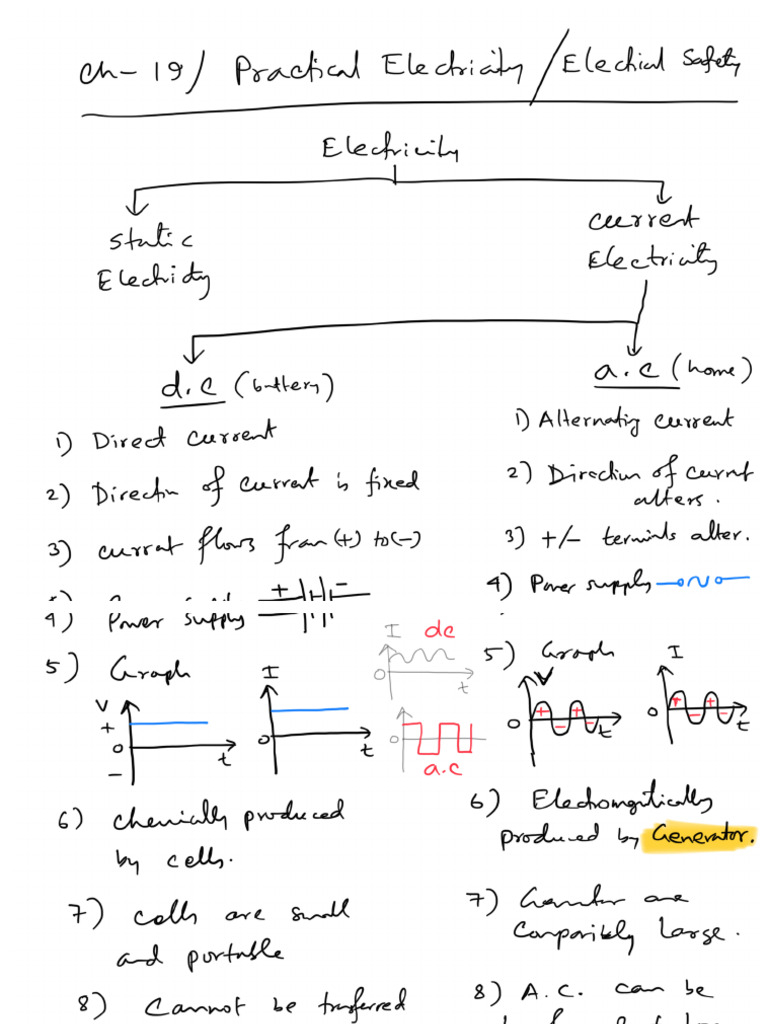 Ch-19/ Practical Electricity / Electrical Safety
Electricity
Static
Electricity
Current
Electricity
d.c (battery)
1) Direct current
2) Direction of current is fixed
3) current flows from (+) to (-)
4) Power supply + -
5) Graph
V + 0 - t
I 0 t
I dc 0 t
0 a.c
6) chemically produced
by cells.
7) cells are small
and portable
8) Cannot be transferred
a.c (home)
1) Alternating current
2) Direction of current
alters.
3) +/- terminals alter.
4) Power supply
5) Graph
V 0 + - + - t
I 0 + - + - t
6) Electromagnetically
produced by Generator.
7) Generator are
comparitively large.
8) A.C. can be